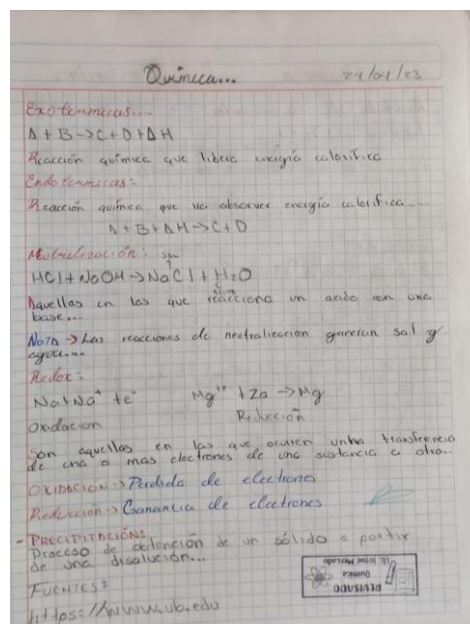 Química...
24/04/23
Exotermicas...
A + B → C + D + ΔH
Reacción química que libera energía calorifica
Endotermicas:
Reacción química que va absorver energía calorifica...
A + B + ΔH → C + D
Neutralización:
sal
HCl + NaOH → NaCl + H₂O
Aquellas en las que reacciona un acido con una
base...
NOTA → Las reacciones de neutralización generan sal y
agua...
Redox:
Na → Na⁺ + e⁻ Mg⁺² + 2e → Mg
Oxidacion Reducción
Son aquellas en las que ocurren unha transferencia
de una o mas electrones de una sustancia a otra...
OXIDACIÓN → Perdida de electrones
Reducción → Ganancia de electrones
- PRECIPITACIÓN:
Proceso de obtención de un sólido a partir
de una disolución...
FUENTES:
https://www.ub.edu
REVISADO
Química
Mercado